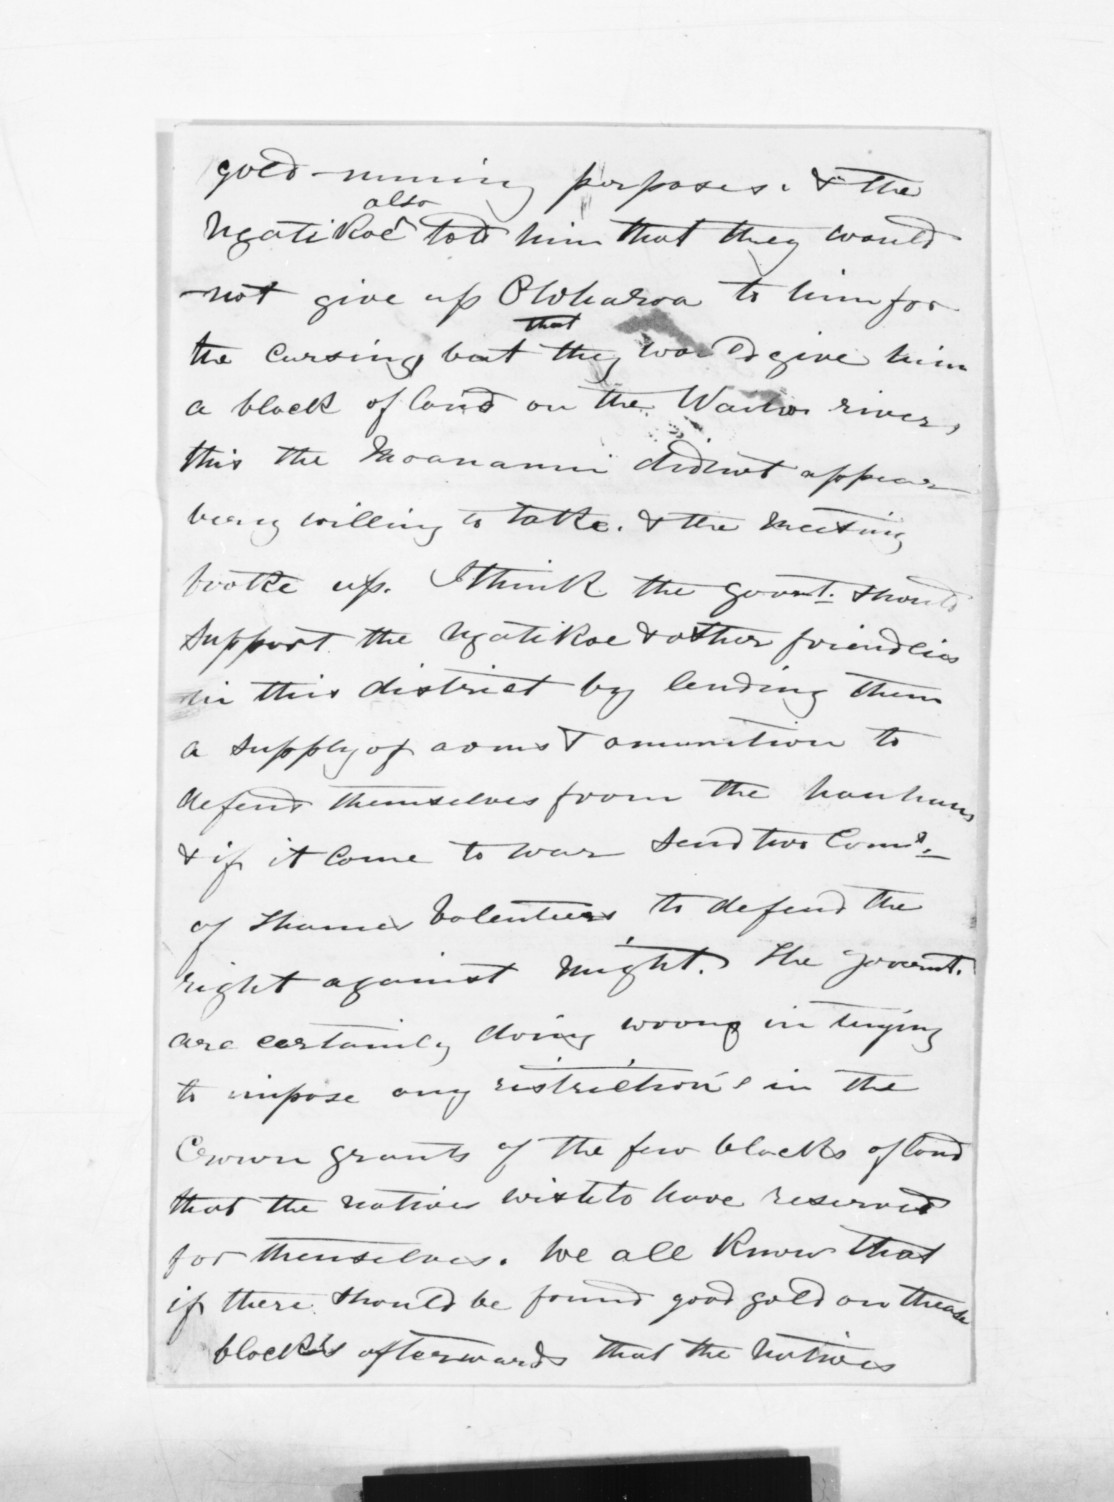 gold-mining purposes. & the
Ngatikoe also told him that they would
not give up Owharoa to him for
the cursing, but that they would give him
a block of land on the river,
this the Moananui did not appear
very willing to take. & the meeting
brooke up. I think the govnt. should
support the Ngatikoe & other friendlies
in this district by lending them
a supply of arms & amunition to
defend themselves from the hauhaus
& if it come to war send two Coms.
of Thames Volenteers, to defend the
right against might. The Governt.
are certainly doing wrong in trying
to impose any ristrictions in the
Crown grants of the few blocks of land
that the natives wish to have reserved
for themselves. We all know that
if there should be found good gold on these
blocks afterwards that the Natives